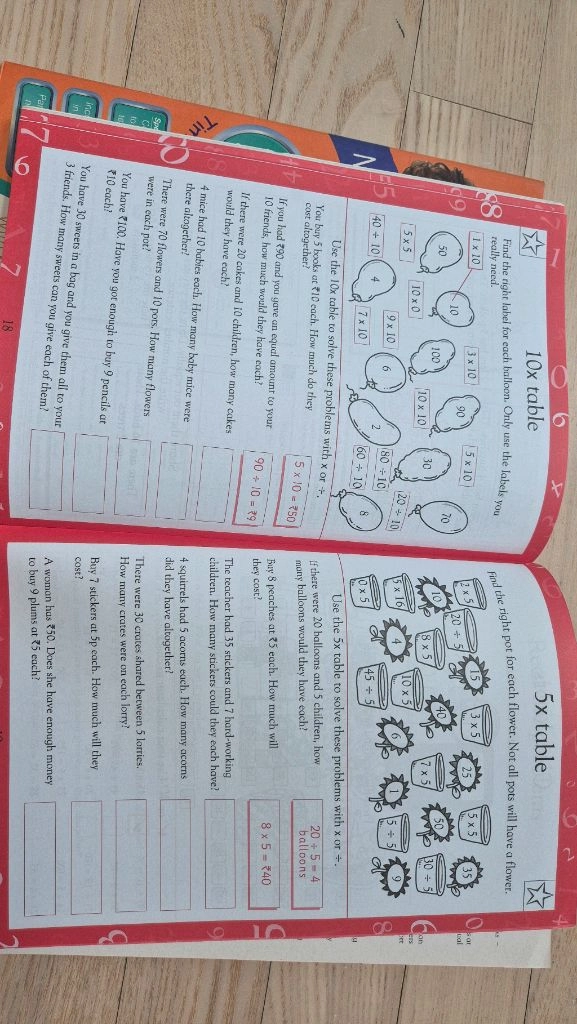 10x table
Find the right label for each balloon. Only use the labels you
really need.
1 x 10
3 x 10
5 x 10
50
10
90
70
5 x 5
10 x 0
100
10 x 10
30
20 ÷ 10
40 ÷ 10
4
9 x 10
6
80 ÷ 10
8
7 x 10
2
60 ÷ 10
Use the 10x table to solve these problems with x or ÷.
You buy 5 books at ₹10 each. How much do they
cost altogether?
5 x 10 = ₹50
If you had ₹90 and you gave an equal amount to your
10 friends, how much would they have each?
90 ÷ 10 = ₹9
If there were 20 cakes and 10 children, how many cakes
would they have each?
4 mice had 10 babies each. How many baby mice were
there altogether?
There were 70 flowers and 10 pots. How many flowers
were in each pot?
You have ₹100. Have you got enough to buy 9 pencils at
₹10 each?
You have 30 sweets in a bag and you give them all to your
3 friends. How many sweets can you give each of them?
18
5x table
Find the right pot for each flower. Not all pots will have a flower.
2 x 5
15
3 x 5
25
5 x 5
35
20 ÷ 5
10
8 x 5
40
7 x 5
50
30 ÷ 5
5 x 16
4
10 x 5
6
1
5 ÷ 5
9
0 x 5
45 ÷ 5
Use the 5x table to solve these problems with x or ÷.
If there were 20 balloons and 5 children, how
many balloons would they have each?
20 ÷ 5 = 4
balloons
Buy 8 peaches at ₹5 each. How much will
they cost?
8 x 5 = ₹40
The teacher had 35 stickers and 7 hard-working
children. How many stickers could they each have?
4 squirrels had 5 acorns each. How many acorns
did they have altogether?
There were 30 crates shared between 5 lorries.
How many crates were on each lorry?
Buy 7 stickers at 5p each. How much will they
cost?
A woman has ₹50. Does she have enough money
to buy 9 plums at ₹5 each?